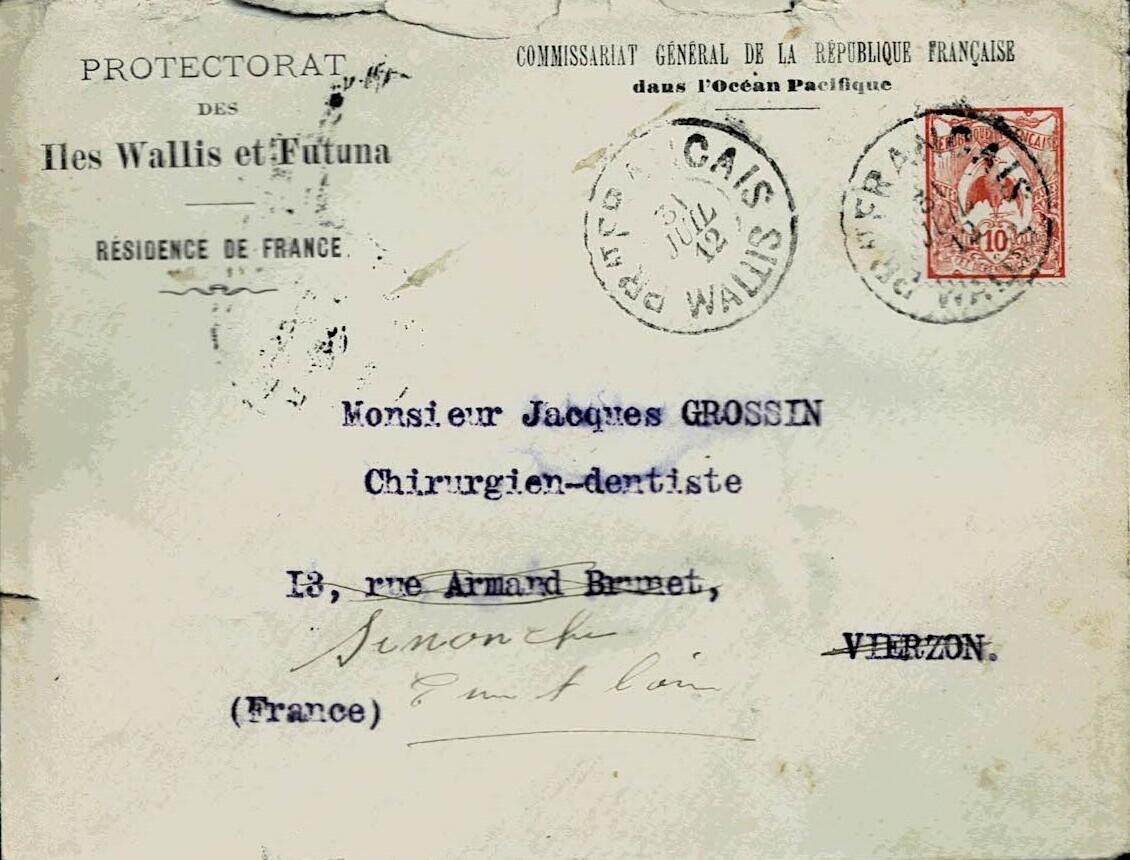 PROTECTORAT
DES
Iles Wallis et Futuna
RÉSIDENCE DE FRANCE.
COMMISSARIAT GÉNÉRAL DE LA RÉPUBLIQUE FRANÇAISE
dans l'Océan Pacifique
PROT FRANCAIS
31
JUIL
12
WALLIS
FRANCAIS
12
WALLIS
10
Monsieur Jacques GROSSIN
Chirurgien-dentiste
I3, rue Armand Brunet,
Senonche
VIERZON.
Eure et loir
(France)